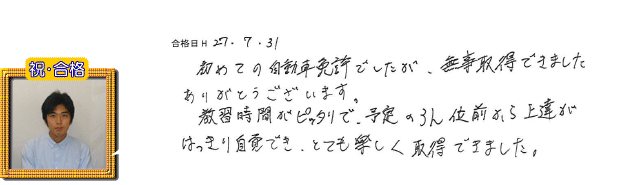 祝・合格
合格日 H 27・7・31
初めての自動車免許でしたが、無事取得できました
ありがとうございます。
教習時間がピッタリで、予定の3h位前から上達が
はっきり自覚でき、とても楽しく取得できました。